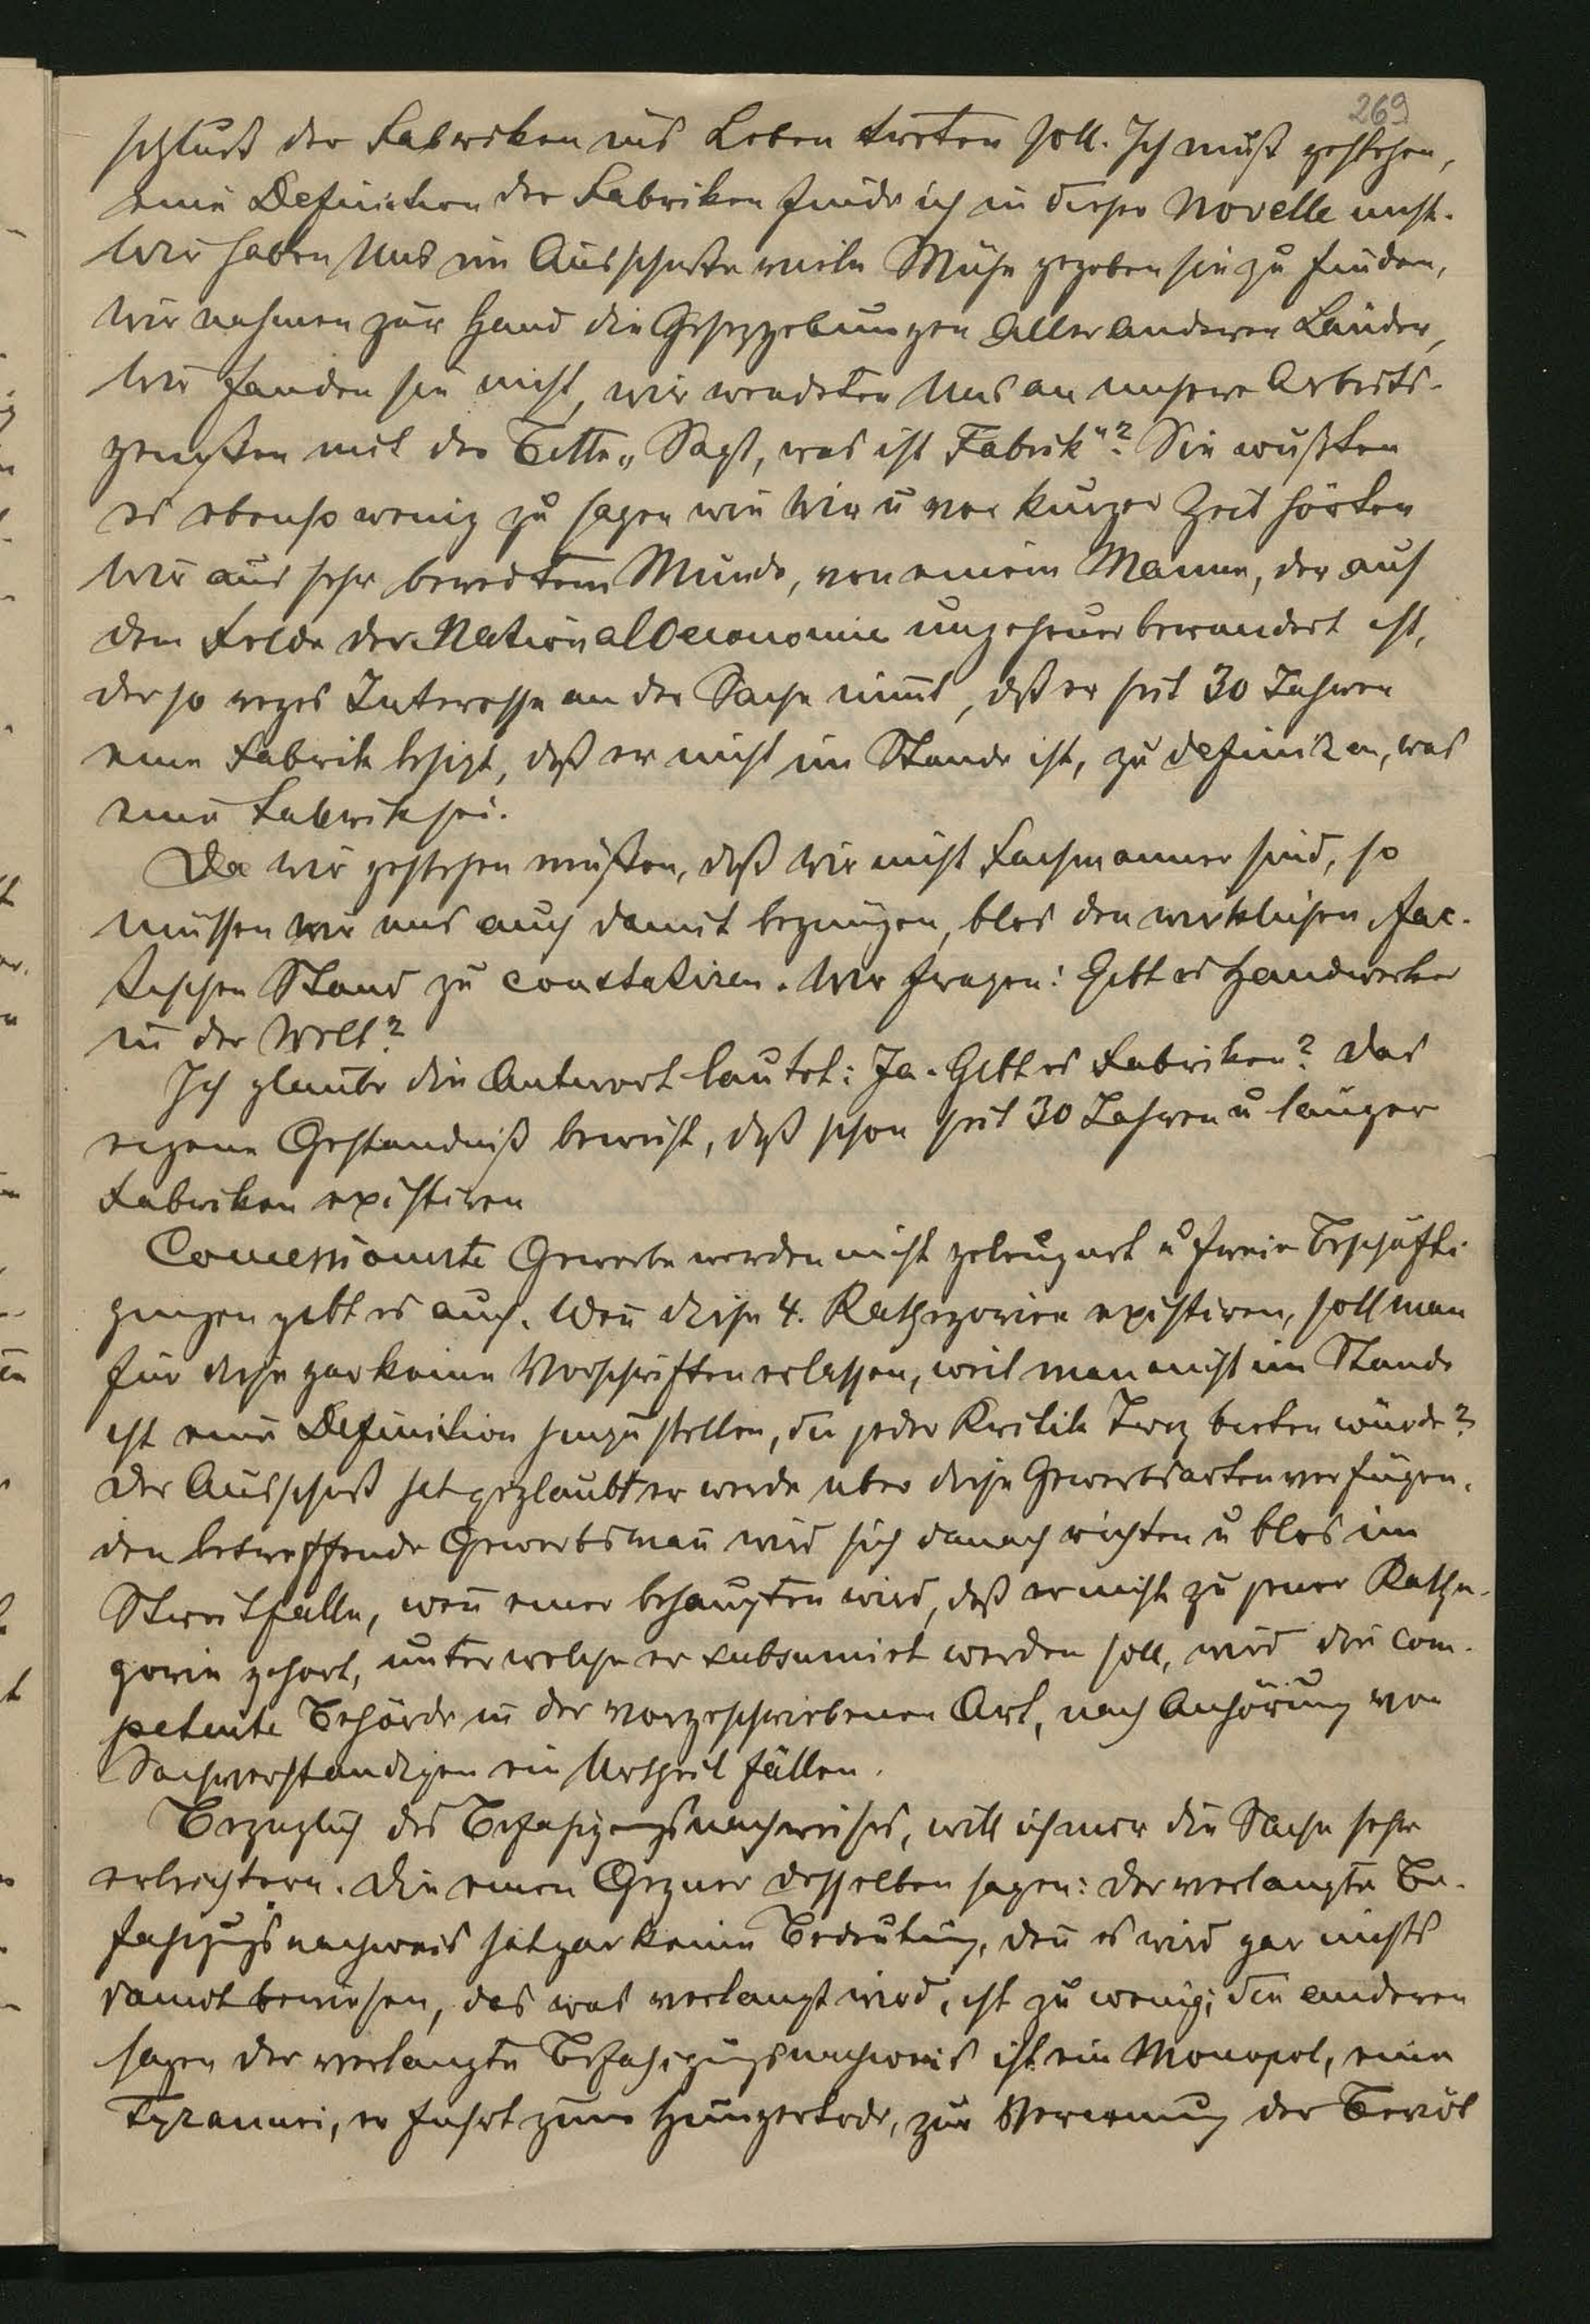 269
schluß der Fabriken ins Leben treten soll. Ich muß gestehen,
eine Definition der Fabriken finde ich in dieser Novelle nicht.
Wir haben Uns im Ausschuße viele Mühe gegeben sie zu finden,
wir nahmen zur Hand die Gesezgebungen aller anderen Länder,
wir fanden sie nicht, wir wendeten Uns an unsere Arbeits-
genoßen mit der Bitte „Sagt, was ist Fabrik"? Sie wußten
es ebenso wenig zu sagen wie wir u vor kurzer Zeit hörten
wir aus sehr beredtem Munde, von einem Manne, der auf
dem Felde der National Oeconomie ungeheuer bewandert ist,
der so reges Interesse an der Sache nimt, dß er seit 30 Jahren
eine Fabrik besizt, daß er nicht im Stande ist, zu definiren, was
eine Fabrik sei.
Da wir gestehen müßen, daß wir nicht Fachmanner sind, so
müssen wir uns auch damit begnügen, blos den wirklichen fac-
tischen Stand zu constatiren. Wir fragen: Gibt es Handwerker
in der Welt?
Ich glaube die Antwort lautet: Ja. Gibt es Fabriken? Das
eigene Geständniß beweist, daß schon seit 30 Jahren u länger
Fabriken existiren
Concessionirte Gewerbe werden nicht geleugnet u freie Beschäfti
gungen gibt es auch. Wen diese 4. Kathegorien existiren, soll man
für diese gar keine Vorschriften erlassen, weil man nicht im Stande
ist eine Definition hinzustellen, die jeder Kritik Troz bieten würde?
Der Ausschuß hat geglaubt er werde uber diese Gewerbsarten verfügen,
den betreffende Gewerbsman wird sich danach richten u blos im
Streitfalle, wen einer behaupten wird, daß er nicht zu jener Kathe-
gorie gehort, unter welche er subsumirt werden soll, wird die com-
petente Behörde in der vorgeschriebenen Art, nach Anhörung von
Sachverständigen ein Urtheil fällen.
Bezuglich des Befahigungsnachweises, will ich mir die Sache sehr
erleichtern. Die einen Gegner desselben sagen: der verlangte Be-
fahigungsnachweis hat gar keine Bedeutung, den es wird gar nichts
damit bewiesen, das was verlangt wird, ist zu wenig; die anderen
sagen der verlangte Befahigungsnachweis ist ein Monopol, eine
Tyrannei, er fuhrt zum Hungertode, zur Verarmung der Bevöl